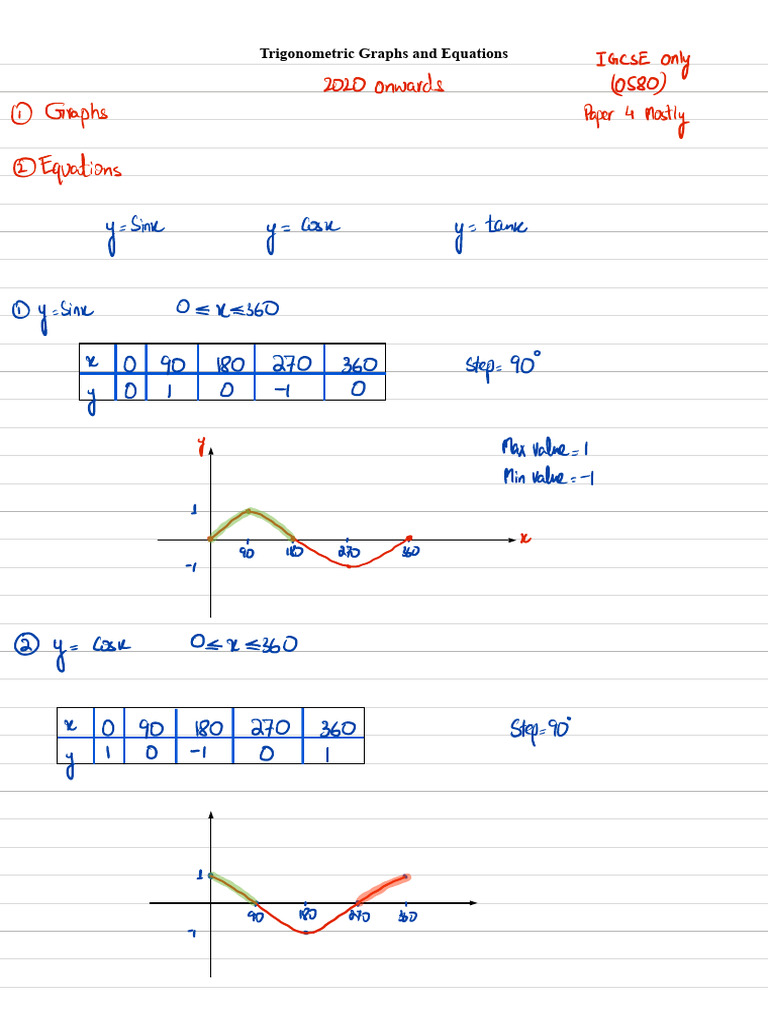 Trigonometric Graphs and Equations
IGCSE only
(0580)
Paper 4 Mostly
2020 onwards
① Graphs
② Equations
y = Sinx y = Cosx y = tanx
① y = Sinx 0 ≤ x ≤ 360
x 0 90 180 270 360
y 0 1 0 -1 0
Step = 90°
y
Max value = 1
Min value = -1
1
x
90 180 270 360
-1
② y = Cosx 0 ≤ x ≤ 360
x 0 90 180 270 360
y 1 0 -1 0 1
Step = 90°
1
90 180 270 360
-1